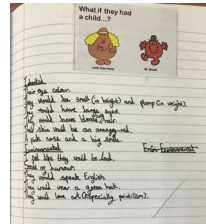 What if they had
a child...?
Little Miss Sunny
Mr. Small
Inherited
Their eye colour.
They would be small (in height) and plump (in weight).
They would have large eyes.
They would have blonde hair.
Their skin would be an orange-red.
A pink nose and a big smile.
Environmental
I feel like they would be loud.
Sense of humour.
They would speak English.
They would wear a green hat.
They will love art (especially pointilism).